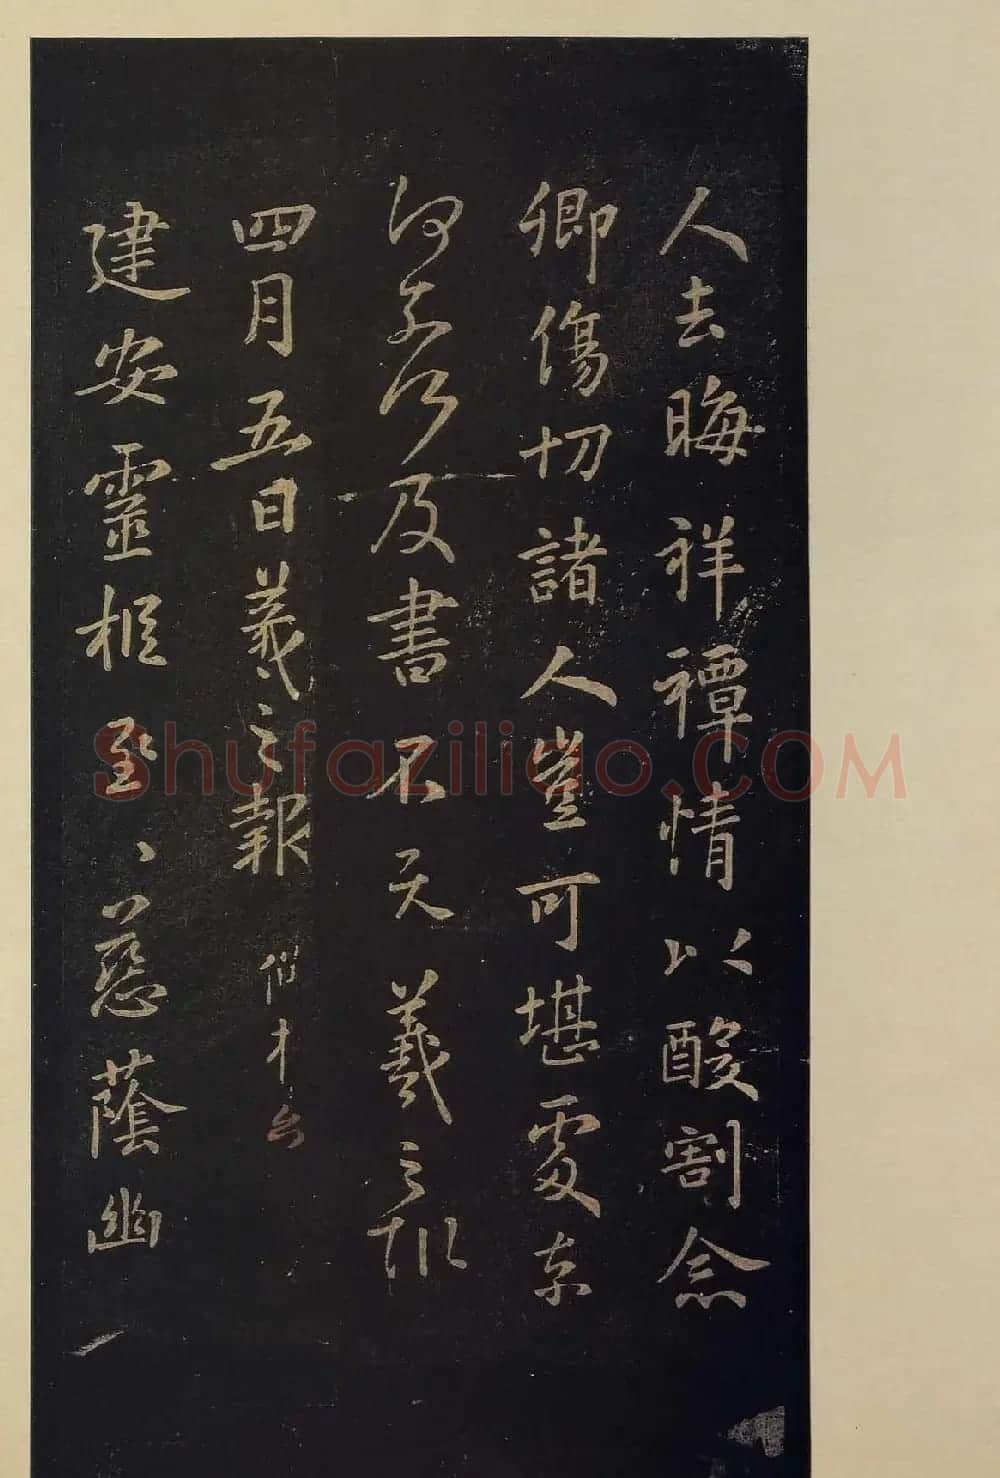 人去晦祥禫情以酸割念
卿傷切諸人豈可堪處奈
何奈何及書不羲之
四月五日羲之報
建安靈柩至〻慈蔭幽
Shufaziliao.COM